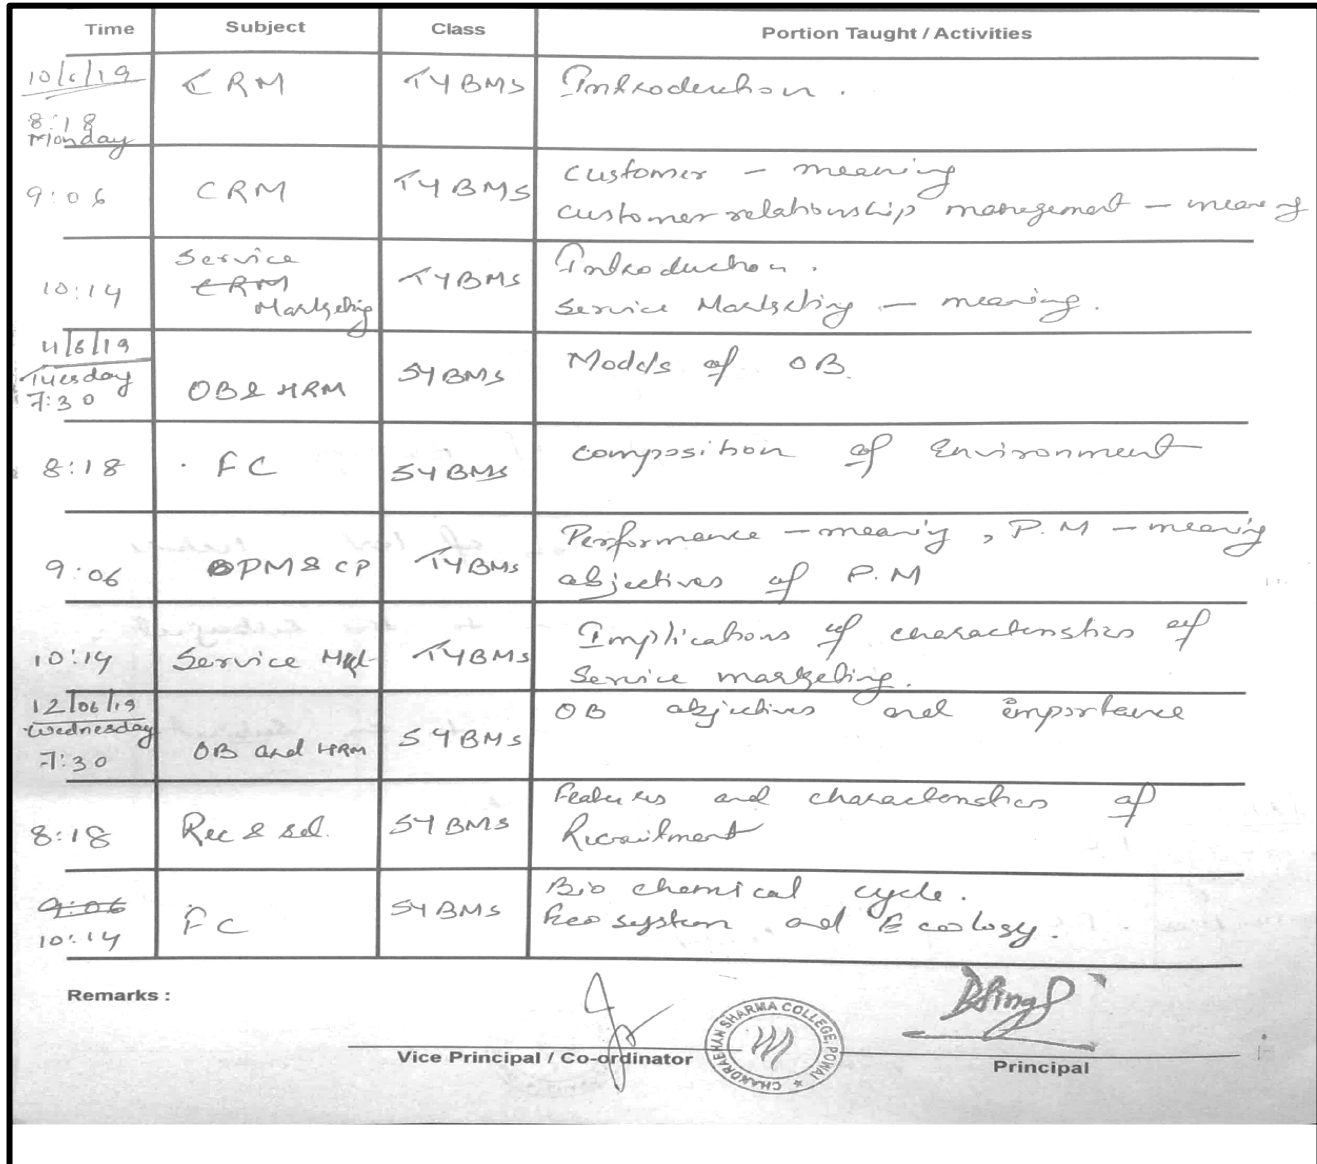 Time Subject Class Portion Taught / Activities
10/6/19 CRM TYBMS Introduction.
8:18
Monday
9:06 CRM TYBMS Customer - meaning
customer relationship management - meaning
10:14 Service CRM Marketing TYBMS Introduction.
Service Marketing - meaning.
11/6/19
Tuesday
7:30 OB & HRM SYBMS Models of OB.
8:18 FC SYBMS composition of Environment
9:06 PM & CP TYBMS Performance - meaning, P.M - meaning
objectives of P.M
10:14 Service Mkt TYBMS Implications of characteristics of
Service marketing.
12/06/19
Wednesday
7:30 OB and HRM SYBMS OB objectives and importance
8:18 Rec & sel. SYBMS Features and characteristics of
Recruitment
9:06
10:14 FC SYBMS Bio chemical cycle.
Eco system and Ecology.
Remarks :
Vice Principal / Co-ordinator
CHANDRABHAN SHARMA COLLEGE, POWAI
Principal